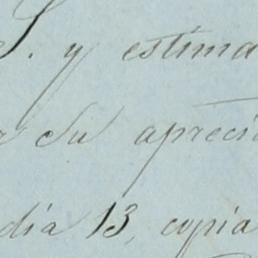 S. y estima
su apreci
dia 13, copia